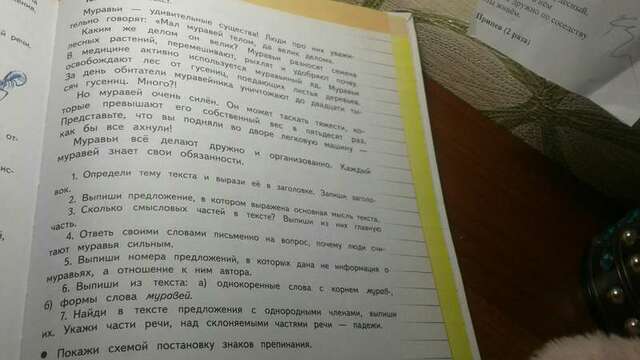 Муравьи — удивительные существа! Люди про них уважи-
тельно говорят: «Мал муравей телом, да велик делом».
Каким же делом он велик? Муравьи разносят семена
лесных растений, перемешивают, рыхлят и удобряют почву.
В медицине активно используется муравьиный яд. Муравьи
освобождают лес от гусениц, поедающих листья деревьев.
За день обитатели муравейника уничтожают до двадцати ты-
сяч гусениц. Много?!
Но муравей очень силён. Он может таскать тяжести, ко-
торые превышают его собственный вес в пятьдесят раз.
Представьте, что вы подняли во дворе легковую машину —
как бы все ахнули!
Муравьи всё делают дружно и организованно. Каждый
муравей знает свои обязанности.
1. Определи тему текста и вырази её в заголовке. Запиши заголо-
вок.
2. Выпиши предложение, в котором выражена основная мысль текста.
3. Сколько смысловых частей в тексте? Выпиши из них главную
часть.
4. Ответь своими словами письменно на вопрос, почему люди счи-
тают муравья сильным.
5. Выпиши номера предложений, в которых дана не информация о
муравьях, а отношение к ним автора.
6. Выпиши из текста: а) однокоренные слова с корнем мурав-,
б) формы слова муравей.
7. Найди в тексте предложения с однородными членами, выпиши
их. Укажи части речи, над склоняемыми частями речи — падежи.
● Покажи схемой постановку знаков препинания.
речи,
от-
ис-
дружно по соседству
живём.
Припев (2 раза)